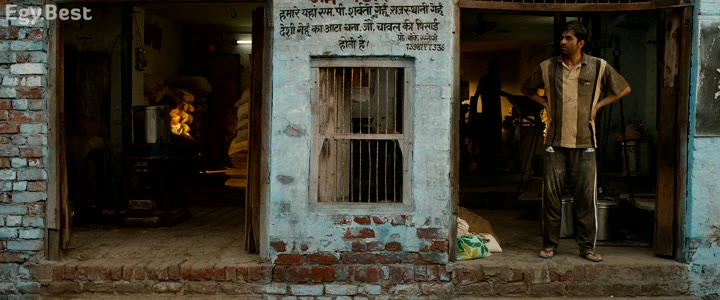 Egy.Best
हमारे यहाँ एम.पी. शर्बती गेहूं, राजस्थानी गेहूं
देशी गेहूं का आटा चना, जौ, चावल की पिसाई
होती है।